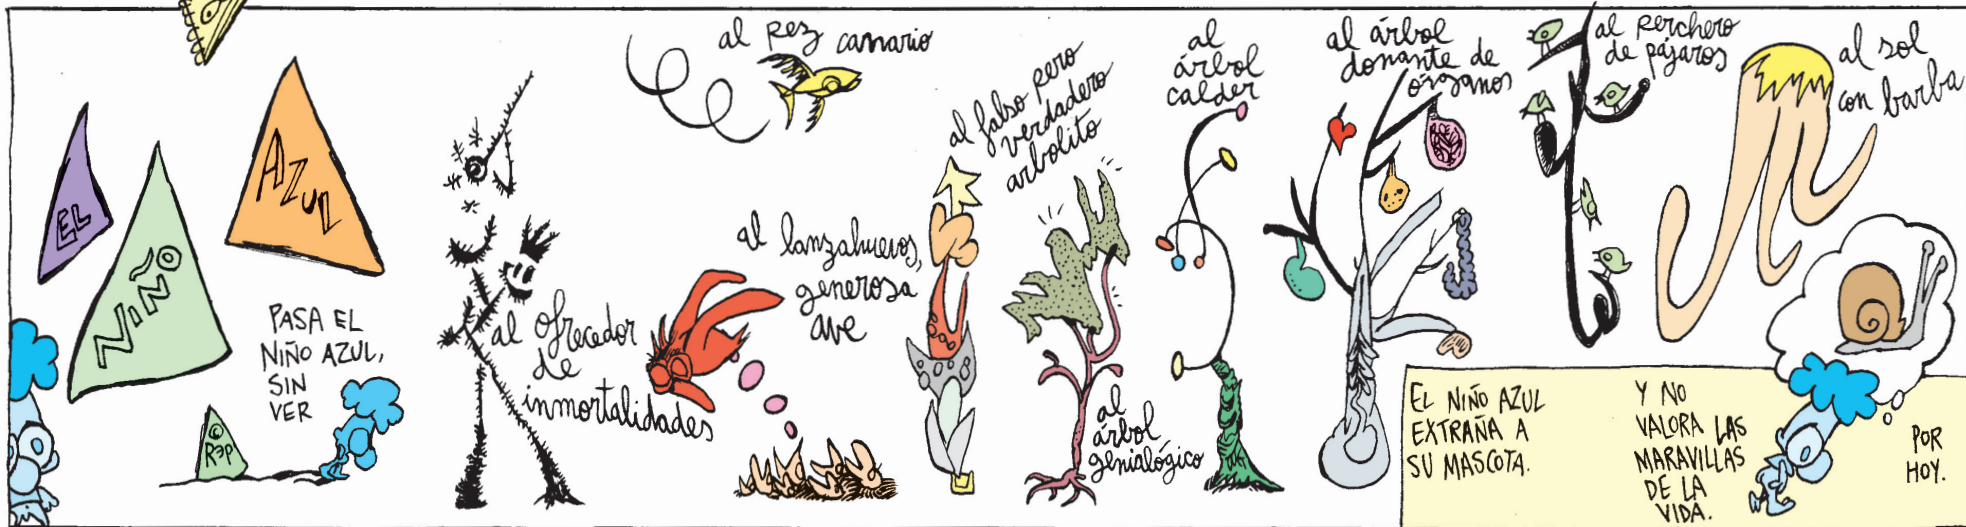 EL
NIÑO
AZUL
PASA EL
NIÑO AZUL,
SIN
VER
© REP
al ofrecedor
de
inmortalidades
al pez canario
al lanzahuevos,
generosa
ave
al falso pero
verdadero
arbolito
al
árbol
genialógico
al
árbol
calder
al árbol
donante de
órganos
al perchero
de pájaros
al sol
con barba
EL NIÑO AZUL
EXTRAÑA A
SU MASCOTA.
Y NO
VALORA LAS
MARAVILLAS
DE LA
VIDA.
POR
HOY.